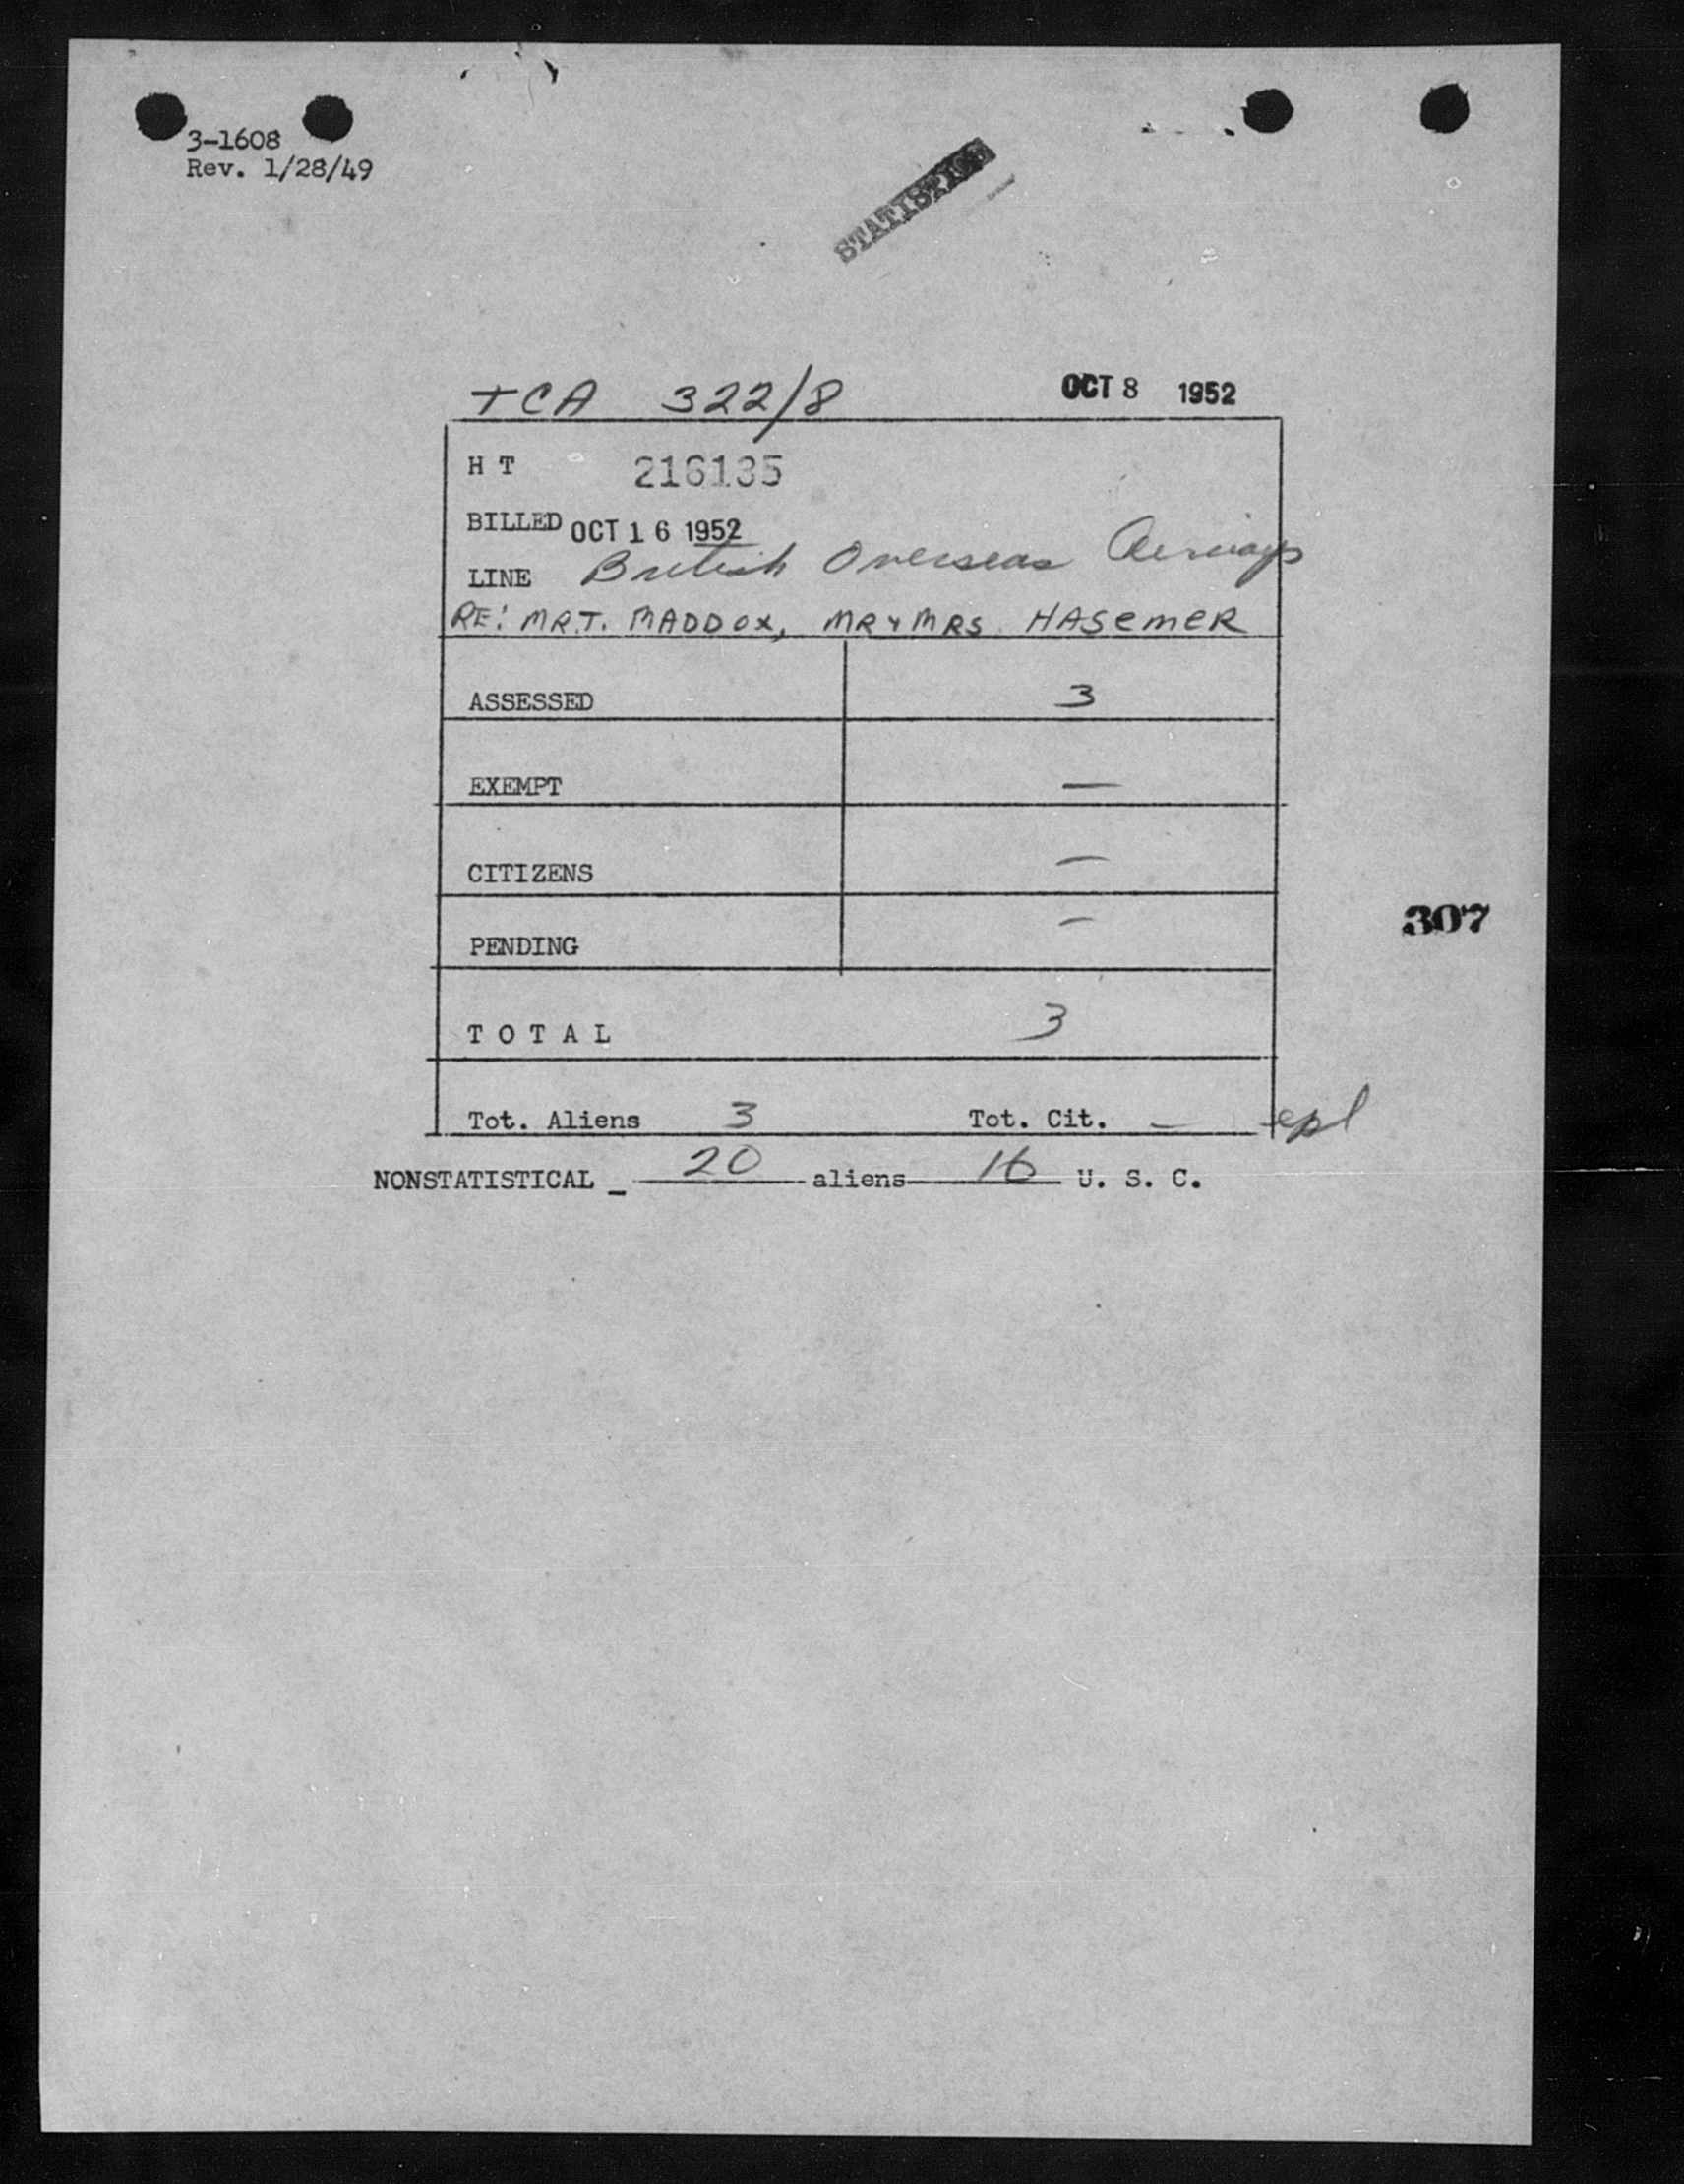 3-1608
Rev. 1/28/49
STATISTICS
TCA 322/8 OCT 8 1952
H T 216135
BILLED OCT 16 1952
LINE British Overseas Airways
RE: MR.T. MADDOX, MR & MRS. HASEMER
ASSESSED 3
EXEMPT —
CITIZENS —
307
PENDING —
T O T A L 3
Tot. Aliens 3 Tot. Cit. — epl
NONSTATISTICAL _ 20 aliens 16 U. S. C.